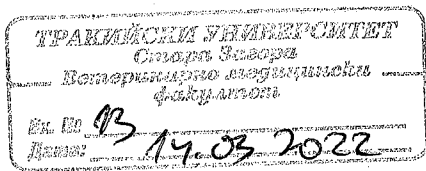 ТРАКИЙСКИ УНИВЕРСИТЕТ
Стара Загора
Ветеринарно медицински
факултет
Вх. № 13
Дата: 14.03 2022